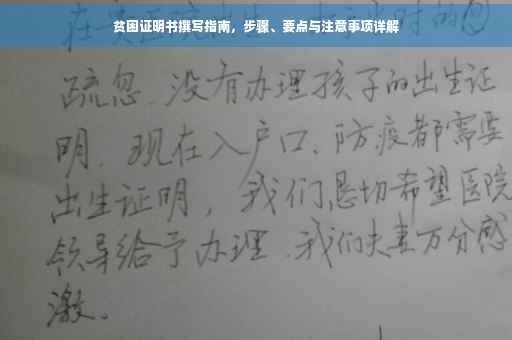 贫困证明书撰写指南，步骤、要点与注意事项详解
疏忽、没有办理孩子的出生证
明、现在入户口、防疫都需要
出生证明，我们恳切希望医院
领导给予办理、我们夫妻万分感
激。